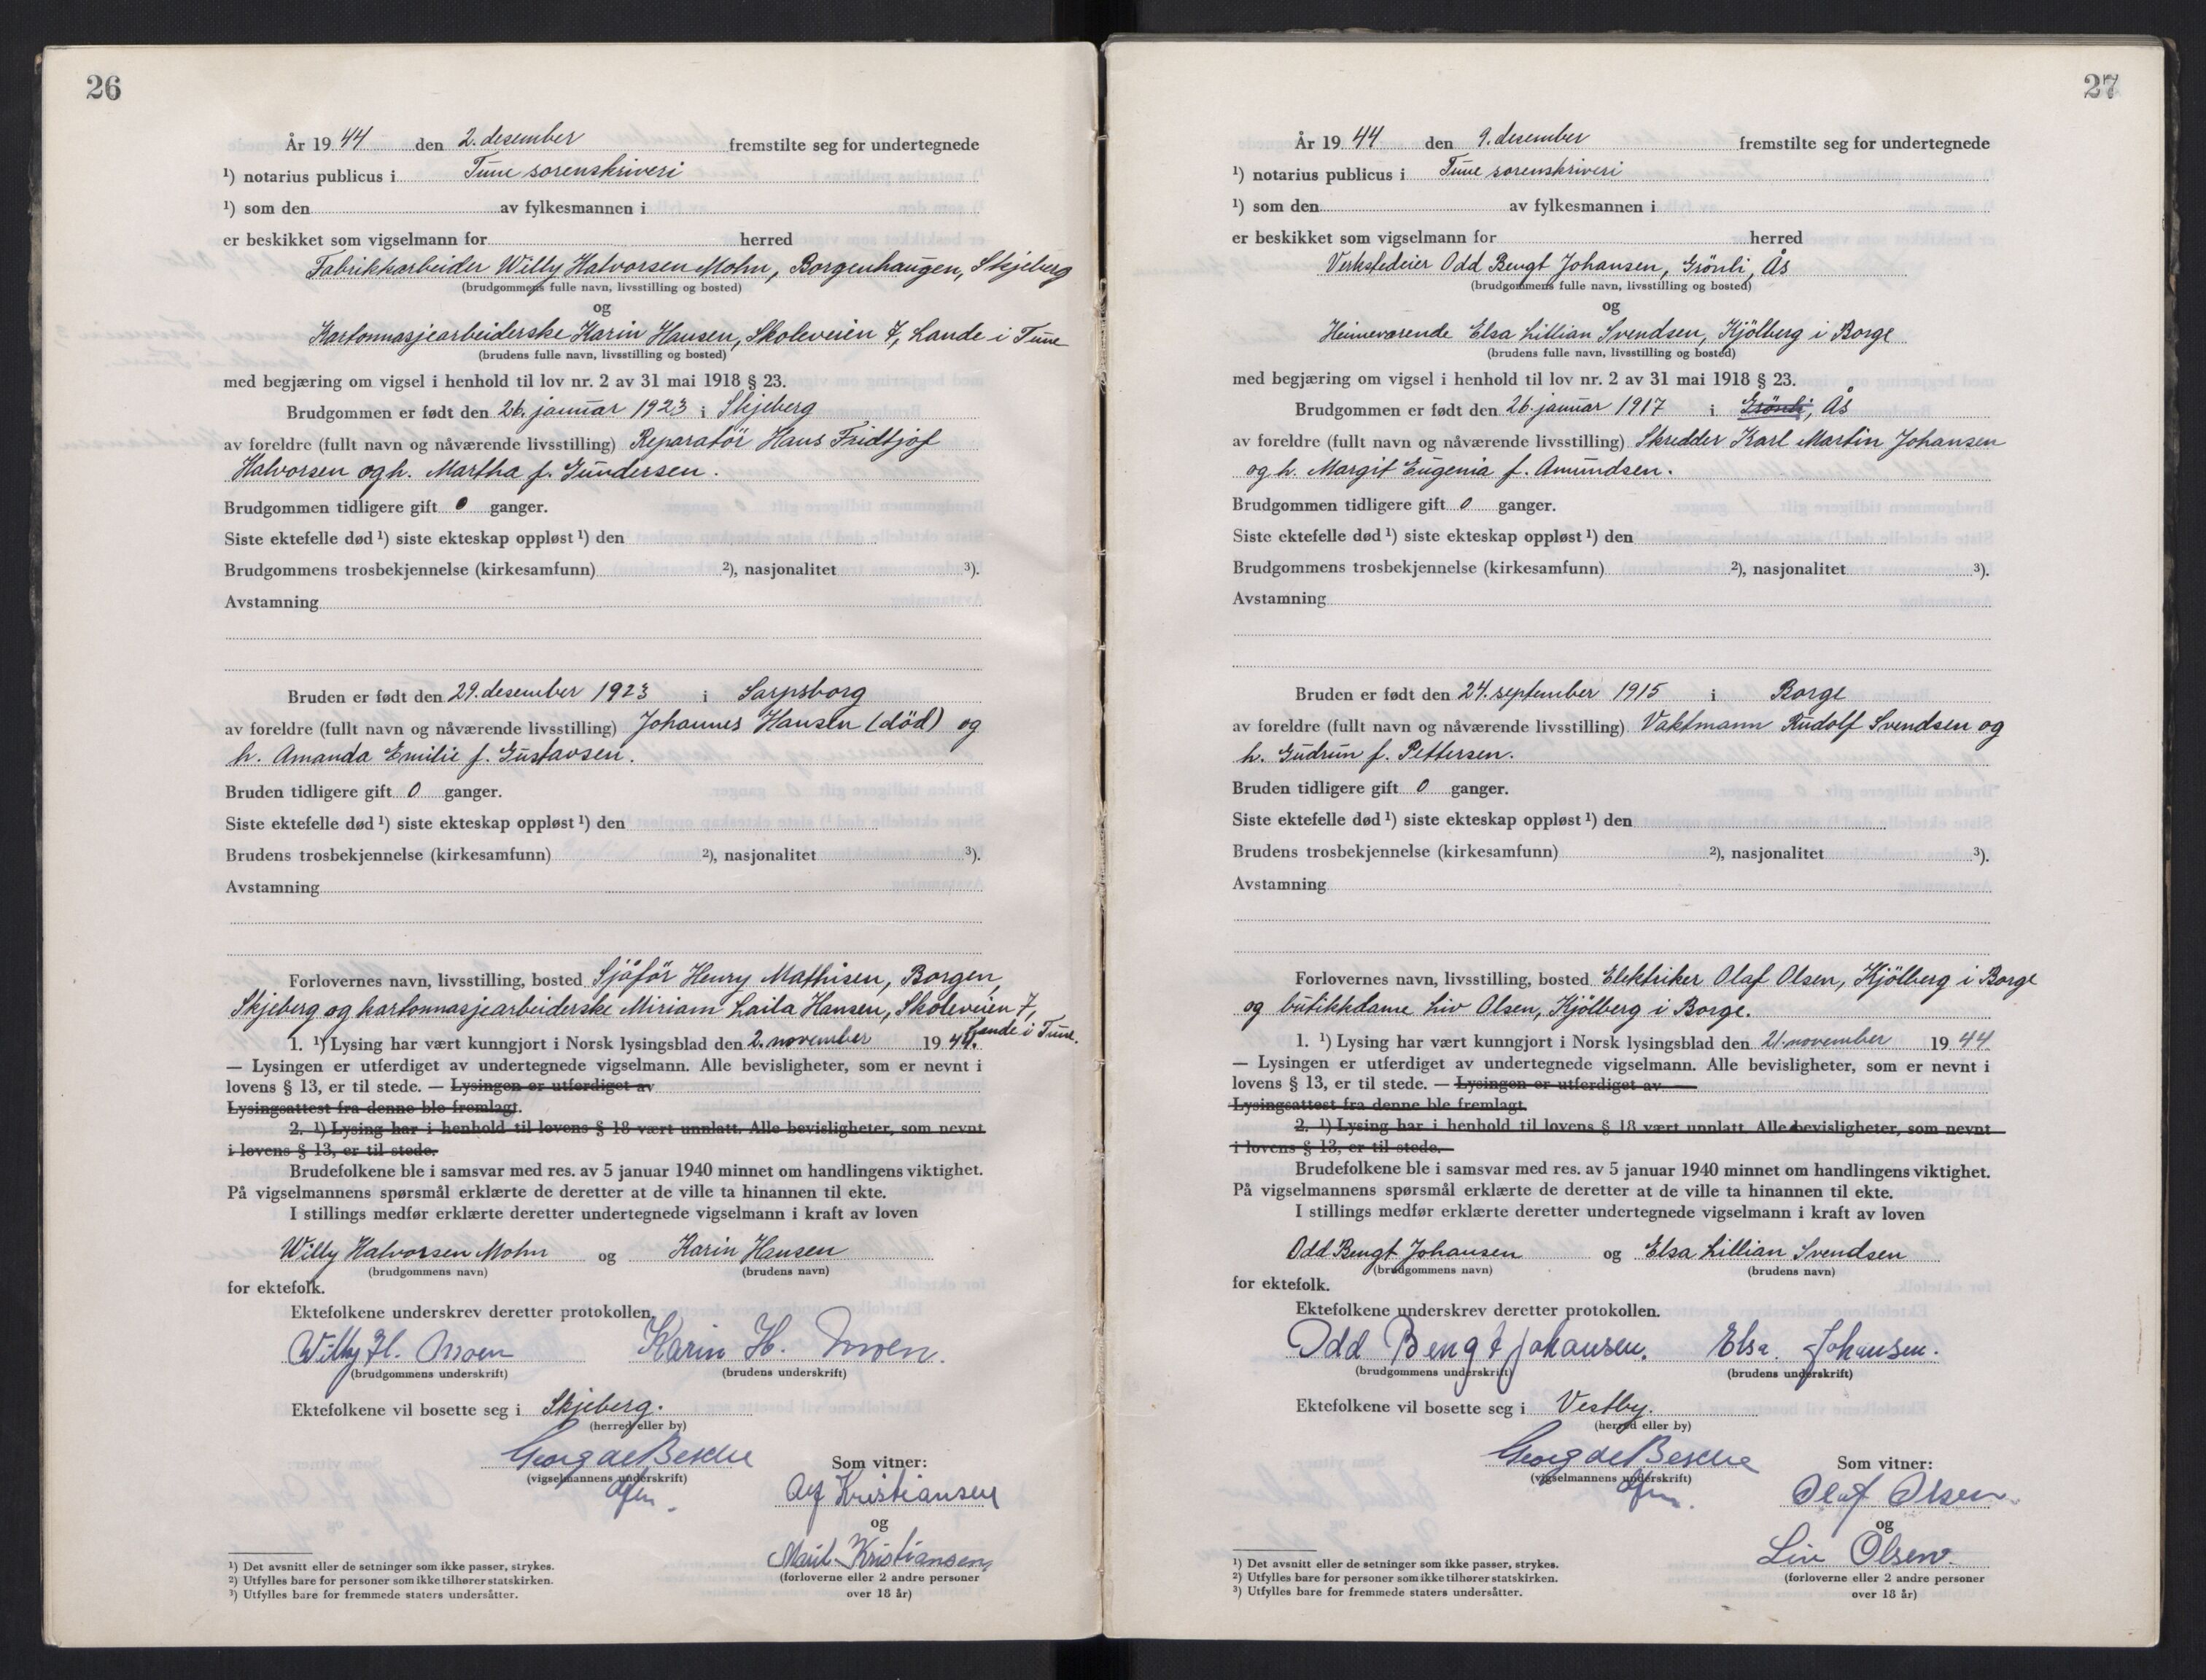 26
År 1944 den 2. desember fremstilte seg for undertegnede
¹) notarius publicus i Tune sorenskriveri
¹) som den av fylkesmannen i
er beskikket som vigselmann for herred
Fabrikkarbeider Willy Halvorsen Mohn, Borgenhaugen, Skjeberg
(brudgommens fulle navn, livsstilling og bosted)
og
Kartonnasjearbeiderske Karin Hansen, Skoleveien 7, Lande i Tune
(brudens fulle navn, livsstilling og bosted)
med begjæring om vigsel i henhold til lov nr. 2 av 31 mai 1918 § 23.
Brudgommen er født den 26. januar 1923 i Skjeberg
av foreldre (fullt navn og nåværende livsstilling) Reparatör Hans Fridtjof
Halvorsen og h. Martha f. Gundersen.
Brudgommen tidligere gift 0 ganger.
Siste ektefelle død ¹) siste ekteskap oppløst ¹) den
Brudgommens trosbekjennelse (kirkesamfunn) ²), nasjonalitet ³).
Avstamning
Bruden er født den 29. desember 1923 i Sarpsborg
av foreldre (fullt navn og nåværende livsstilling) Johannes Hansen (död) og
h. Amanda Emilie f. Gustavsen.
Bruden tidligere gift 0 ganger.
Siste ektefelle død ¹) siste ekteskap oppløst ¹) den
Brudens trosbekjennelse (kirkesamfunn) ²), nasjonalitet ³).
Avstamning
Forlovernes navn, livsstilling, bosted Sjåför Henry Mathisen, Borgen,
Skjeberg og kartonnasjearbeiderske Miriam Laila Hansen, Skoleveien 7,
Lande i Tune.
1. ¹) Lysing har vært kunngjort i Norsk lysingsblad den 2. november 1944.
— Lysingen er utferdiget av undertegnede vigselmann. Alle bevisligheter, som er nevnt i
lovens § 13, er til stede. — Lysingen er utferdiget av
Lysingsattest fra denne ble fremlagt.
2. ¹) Lysing har i henhold til lovens § 18 vært unnlatt. Alle bevisligheter, som nevnt
i lovens § 13, er til stede.
Brudefolkene ble i samsvar med res. av 5 januar 1940 minnet om handlingens viktighet.
På vigselmannens spørsmål erklærte de deretter at de ville ta hinannen til ekte.
I stillings medfør erklærte deretter undertegnede vigselmann i kraft av loven
Willy Halvorsen Mohn og Karin Hansen
(brudgommens navn) (brudens navn)
for ektefolk.
Ektefolkene underskrev deretter protokollen.
Willy H. Moen Karin H. Moen.
(brudgommens underskrift) (brudens underskrift)
Ektefolkene vil bosette seg i Skjeberg.
(herred eller by)
Georg de Besche
(vigselmannens underskrift)
Som vitner:
Kristiansen
og
Marit Kristiansen
(forloverne eller 2 andre personer
over 18 år)
¹) Det avsnitt eller de setninger som ikke passer, strykes.
²) Utfylles bare for personer som ikke tilhører statskirken.
³) Utfylles bare for fremmede staters undersåtter.
27
År 1944 den 9. desember fremstilte seg for undertegnede
¹) notarius publicus i Tune sorenskriveri
¹) som den av fylkesmannen i
er beskikket som vigselmann for herred
Verkstedeier Odd Bengt Johansen, Grönli, Ås
(brudgommens fulle navn, livsstilling og bosted)
og
Heimeværende Elsa Lillian Svendsen, Kjölberg i Borge
(brudens fulle navn, livsstilling og bosted)
med begjæring om vigsel i henhold til lov nr. 2 av 31 mai 1918 § 23.
Brudgommen er født den 26. januar 1917 i Grönli, Ås
av foreldre (fullt navn og nåværende livsstilling) Skredder Karl Martin Johansen
og h. Margit Eugenia f. Amundsen.
Brudgommen tidligere gift 0 ganger.
Siste ektefelle død ¹) siste ekteskap oppløst ¹) den
Brudgommens trosbekjennelse (kirkesamfunn) ²), nasjonalitet ³).
Avstamning
Bruden er født den 24. september 1915 i Borge
av foreldre (fullt navn og nåværende livsstilling) Vaktmann Rudolf Svendsen og
h. Gudrun f. Pettersen.
Bruden tidligere gift 0 ganger.
Siste ektefelle død ¹) siste ekteskap oppløst ¹) den
Brudens trosbekjennelse (kirkesamfunn) ²), nasjonalitet ³).
Avstamning
Forlovernes navn, livsstilling, bosted Elektriker Olaf Olsen, Kjölberg i Borge
og butikkdame Liv Olsen, Kjölberg i Borge.
1. ¹) Lysing har vært kunngjort i Norsk lysingsblad den 21. november 1944
— Lysingen er utferdiget av undertegnede vigselmann. Alle bevisligheter, som er nevnt i
lovens § 13, er til stede. — Lysingen er utferdiget av
Lysingsattest fra denne ble fremlagt.
2. ¹) Lysing har i henhold til lovens § 18 vært unnlatt. Alle bevisligheter, som nevnt
i lovens § 13, er til stede.
Brudefolkene ble i samsvar med res. av 5 januar 1940 minnet om handlingens viktighet.
På vigselmannens spørsmål erklærte de deretter at de ville ta hinannen til ekte.
I stillings medfør erklærte deretter undertegnede vigselmann i kraft av loven
Odd Bengt Johansen og Elsa Lillian Svendsen
(brudgommens navn) (brudens navn)
for ektefolk.
Ektefolkene underskrev deretter protokollen.
Odd Bengt Johansen. Elsa Johansen.
(brudgommens underskrift) (brudens underskrift)
Ektefolkene vil bosette seg i Vestby.
(herred eller by)
Georg de Besche
(vigselmannens underskrift)
Som vitner:
Olaf Olsen
og
Liv Olsen.
(forloverne eller 2 andre personer
over 18 år)
¹) Det avsnitt eller de setninger som ikke passer, strykes.
²) Utfylles bare for personer som ikke tilhører statskirken.
³) Utfylles bare for fremmede staters undersåtter.